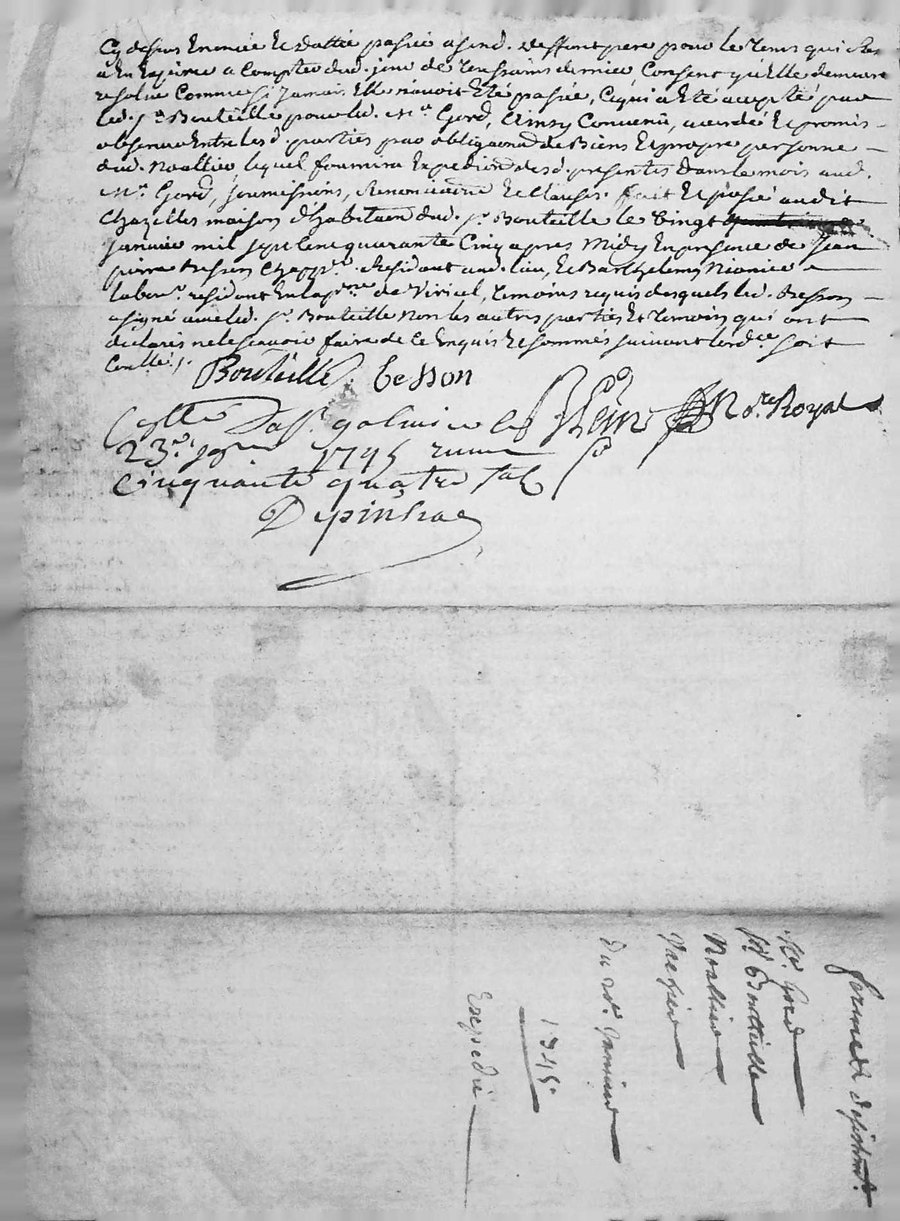 Cy dessus Enoncée Et dattée passée a sond. deffunt pere pour le tems qui
a En Expirer a Compter dud. jour de toussaints dernier Consent qu'Elle demeure
resolue Comme si Jamais Elle n'avoit Eté passée, Ce qui a Eté accepté par
led. Sr. Bouteille pour led. Mr. Gord, Ainsy Convenu, accordé Et promis
observer Entre lesd. parties par obligaon de Biens Et propre personne
dud. Noallier lequel fournira Expedition desd. presentes dans le mois aud.
Mr. Gord, soumissions, Renonciaon Et Clauses. fait Et passé audit
Chazelles maison d'habitaon dud. Sr. Bouteille le Vingt
Janvier mil sept cent quarante Cinq apres Midy En presence de Jean
pierre Besson Chapp.r Residant aud. lieu, Et Barthelemy
labour. residant En la p.sse de Viricel, temoins requis desquels led. Besson
a signé avec led. Sr. Bouteille Non les autres parties Et temoin qui ont
declarés ne le scavoir faire de ce Enquis Et sommés suivant l'ord.ce soit
Conllé.
Bouteille besson
No.re Royal
Collé a St. galmier le
23e. 1745 receu
Cinquante quatre sols
Depinhac
ferme et desistemt.
Mr. Gord
Sr. Boutteille
Noallier
Du 20e. Janvier
1745
Expedié